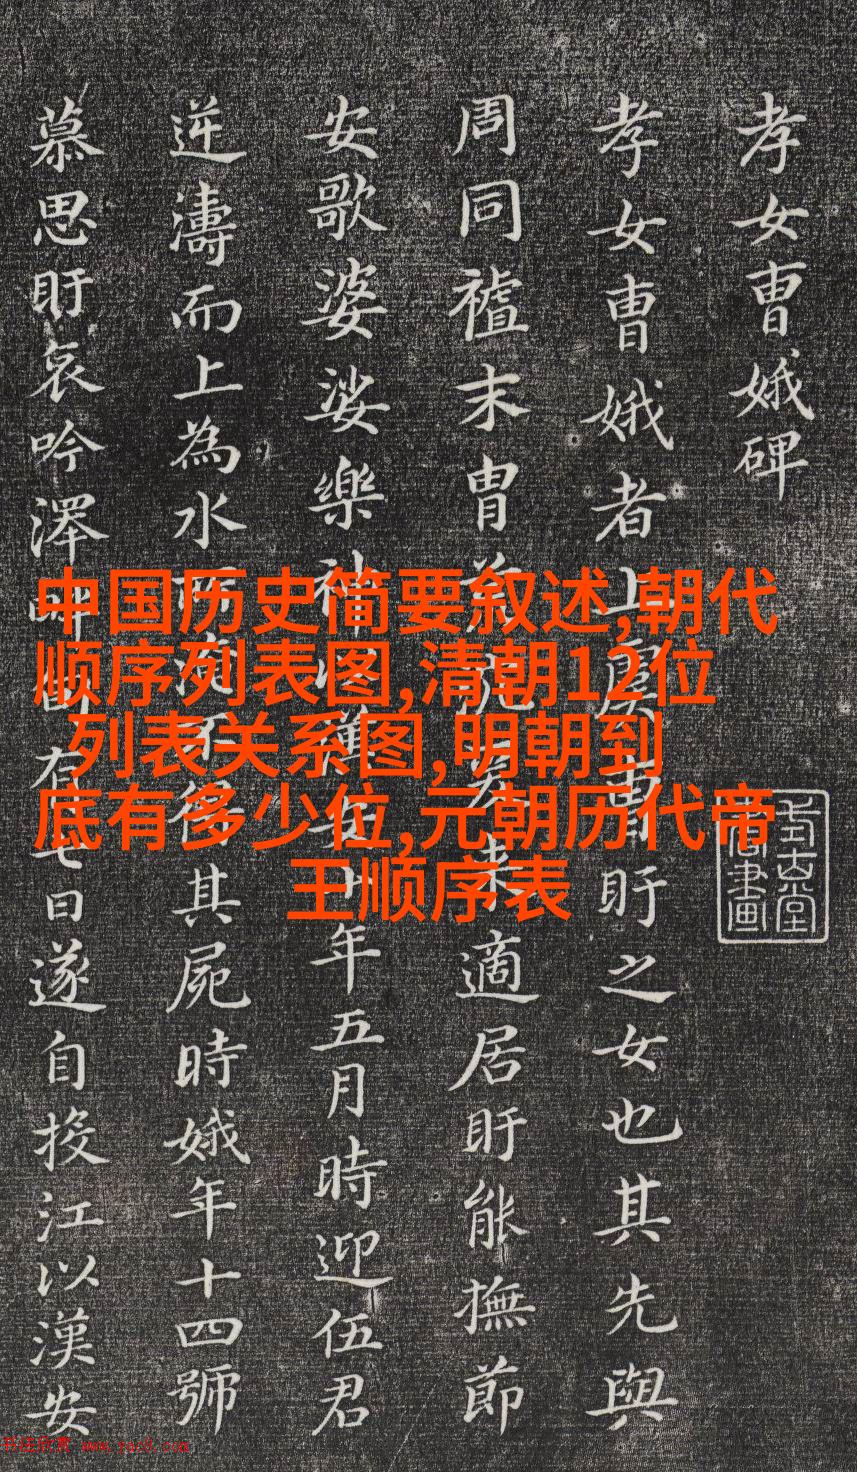 孝女曹娥碑
孝女曹娥者上虞曹盱之女也其先與
周同祖末胄荒爰来適居盱能撫節
安歌婆娑樂神以漢安二年五月時迎伍君
逆濤而上為水所淹不得其屍時娥年十四號
慕思盱哀吟澤畔旬有七日遂自投江以漢安
中国历史简要叙述,朝代
顺序列表图,清朝12位
列表关系图,明朝到
底有多少位,元朝历代帝
王顺序表
书法欣赏 www.yac8.com